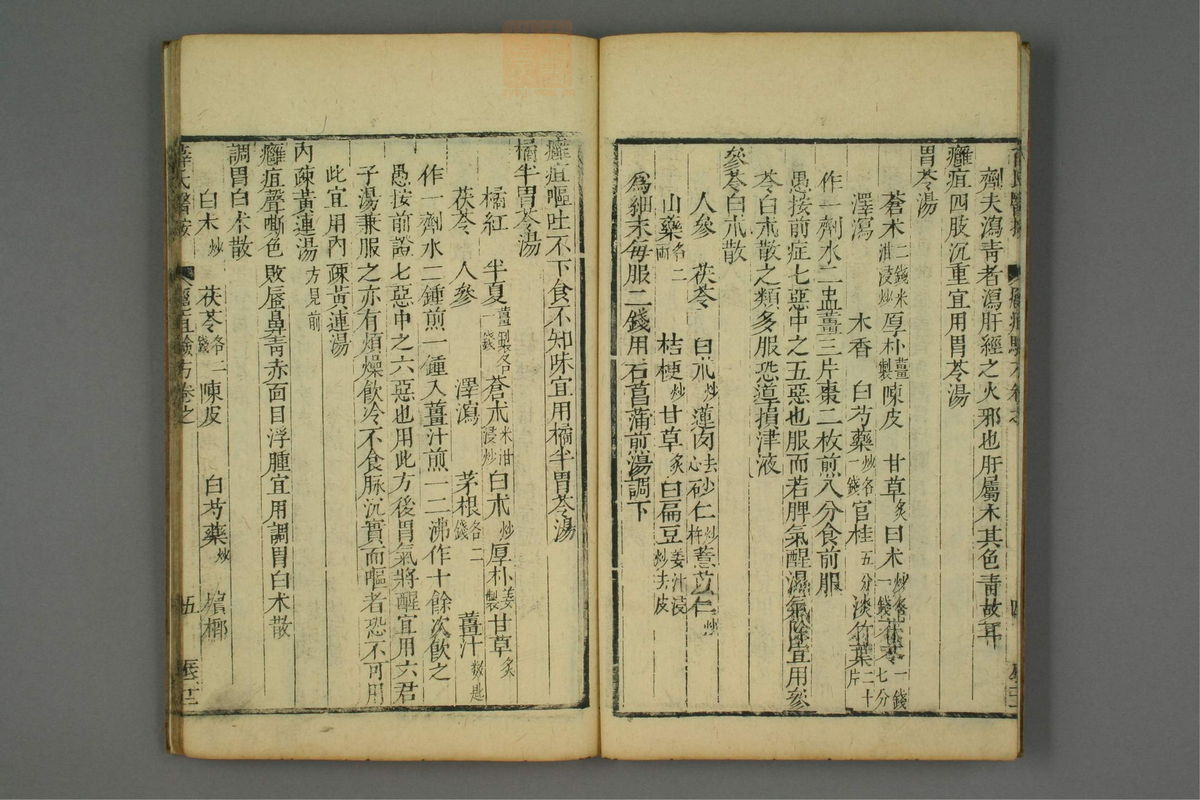 劑夫瀉青者瀉肝經之火邪也肝屬木其色青故耳
癰疽四肢沉重宜用胃苓湯
胃苓湯
蒼朮二錢米泔浸炒 厚朴薑製 陳皮 甘草炙 白朮炒各一錢 茯苓一錢七分
澤瀉 木香 白芍藥炒各一錢 官桂五分 淡竹葉二十片
作一劑水二盅薑三片棗二枚煎八分食前服
愚按前症七惡中之五惡也服而若脾氣醒濕氣除宜用參
苓白朮散之類多服恐導損津液
參苓白朮散
人參 茯苓 白朮炒 蓮肉去心 砂仁炒杵 薏苡仁炒
山藥各二兩 桔梗炒 甘草炙 白扁豆姜汁浸炒去皮
爲細末每服二錢用石菖蒲煎湯調下
癰疽嘔吐不下食不知味宜用橘半胃苓湯
橘半胃苓湯
橘紅 半夏薑製各一錢 蒼朮米泔浸炒 白朮炒 厚朴姜製 甘草炙
茯苓 人參 澤瀉 茅根各二錢 薑汁數匙
作一劑水二鍾煎一鍾入薑汁煎一二沸作十餘次飲之
愚按前證七惡中之六惡也用此方後胃氣將醒宜用六君
子湯兼服之亦有煩燥飲冷不食脉沉實而嘔者恐不可用
此宜用內疎黃連湯
內疎黃連湯方見前
癰疽聲嘶色敗唇鼻青赤面目浮腫宜用調胃白朮散
調胃白朮散
白朮炒 茯苓各二錢 陳皮 白芍藥炒 檳榔
薛氏醫按 癰疽驗方卷之 五